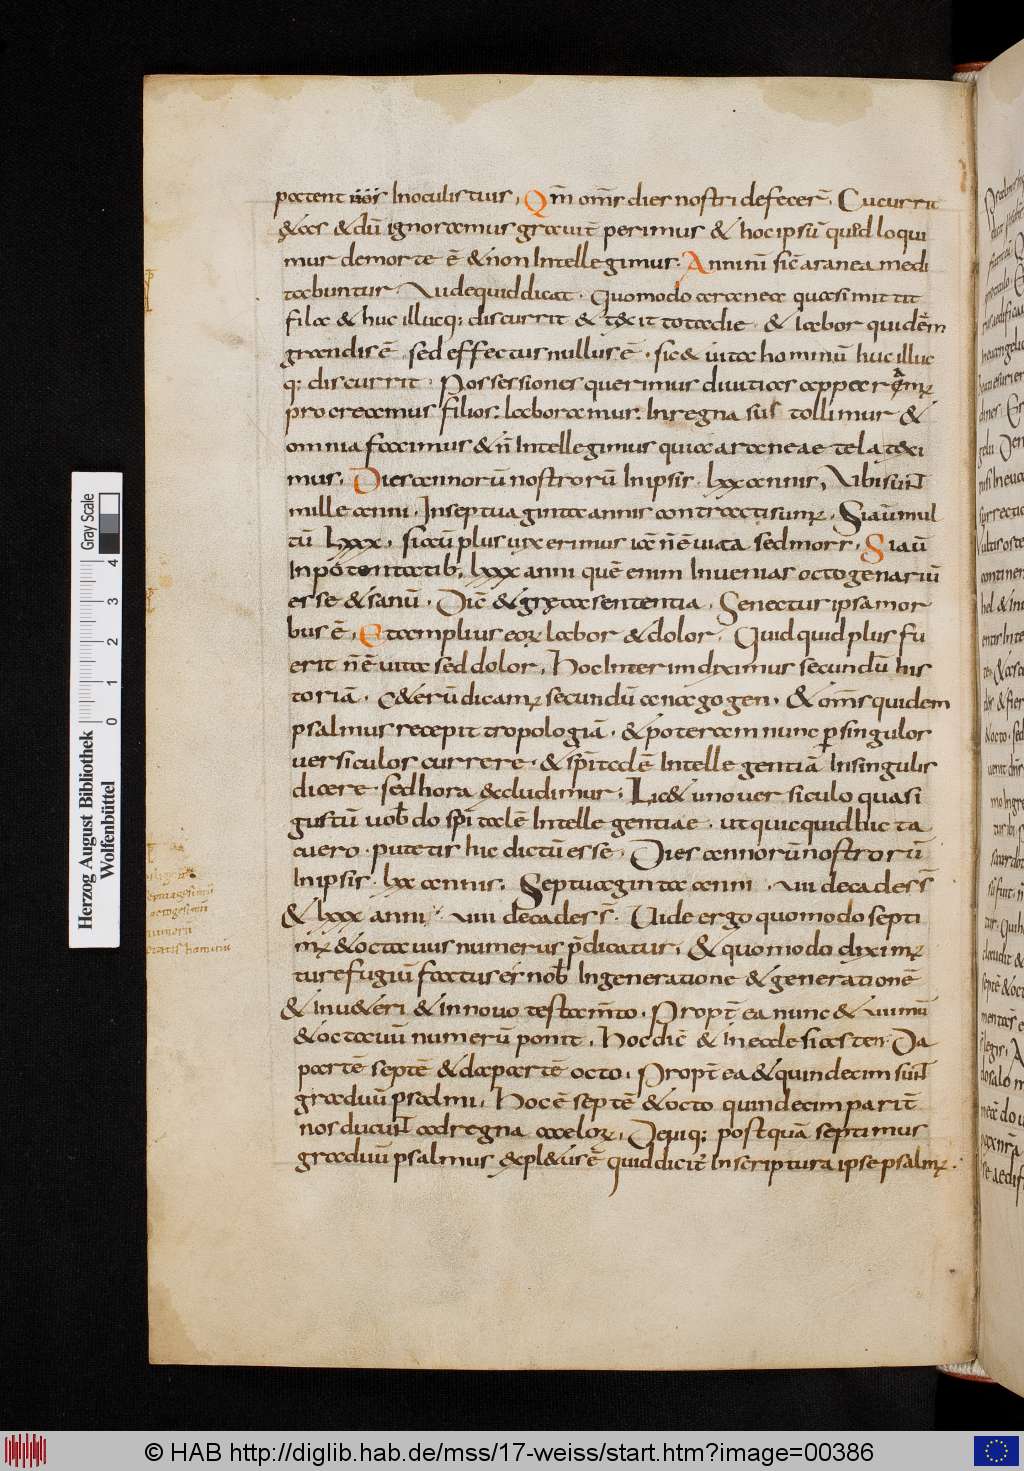 patent nr̄is In oculis tuis, Qm̄ om̄s dies nostri defecer̄. Cucurrit
&as & dū ignoramus grauit̄ perimus & hoc ipsū quod loqui
mur de morte ē & non Intellegimur: Anni nr̄i sic̄ aranea medi
tabuntur. Uide quid dicat. Quomodo aranea quasi mittit
fila & huc illucq; discurrit & t&it tota die & labor quidēm
grandis ē sed effectus nullus ē. sic & uita hominū huc illuc
q; discurrit. Possessiones querimus diuitias apparamꝰ
procreamus filios: laboramus: In regna sus tollimur &
omnia facimus & n̄ Intellegimus quia araneae tela t&i
mus. Dies annorū nostrorū In ipsis lxx annis, Ubi sunt
mille anni. In septuaginta annis contracti sumꝰ. Si aū mul
tū lxxx, si aū plus uixerimus ia n̄ ē uita sed mors. Si aū
In potentatib; lxxx anni quē enim Inuenias octogenariū
esse & sanū. Dic̄ & greca sententia. Senectus ipsa mor
bus ē, Et amplius eoꝝ labor & dolor. Quidquid plus fu
erit n̄ ē uita sed dolor. Hoc Interim diximus secundū his
toriā. C&erū dicamꝰ secundū anagogen. & om̄s quidem
psalmus recepit tropologiā. & poteram nunc ꝑ singulos
uersiculos currere. & spī talē Intellegentiā In singulis
dicere. sed hora excludimur. Lic& uno uersiculo quasi
gustū uob̄ do spī talē Intellegentiae. ut quicquid huc ta
cuero. putetis hic dictū esse. Dies annorū nostrorū
In ipsis lxx annis: Septuaginta anni. uii decades s̄
& lxxx anni uiii decades s̄. Uide ergo quomodo septi
mꝰ & octauus numerus p̄dicatur. & quomodo diximꝰ
tu refugiū factus es nob̄ In generatione & generationē
& in u&eri & in nouo testam̄to. Propt̄ ea nunc & uii mū
& octauū numerū ponit. Hoc dic̄ & in ecclesiasten Da
partē septē & da partē octo. Propt̄ ea & quindecim sunt
graduū psalmi. Hoc ē septē & octo quindecim parit̄
nos ducunt ad regna caeloꝝ. Deniq; postquā septimus
graduū psalmus expl&us ē quid dicit̄ In scriptura ipse psalmꝰ.
septuagesimū
octogesimū
numerū
etatis hominū
Herzog August Bibliothek
Wolfenbüttel
0 1 2 3 4
Gray Scale
© HAB http://diglib.hab.de/mss/17-weiss/start.htm?image=00386